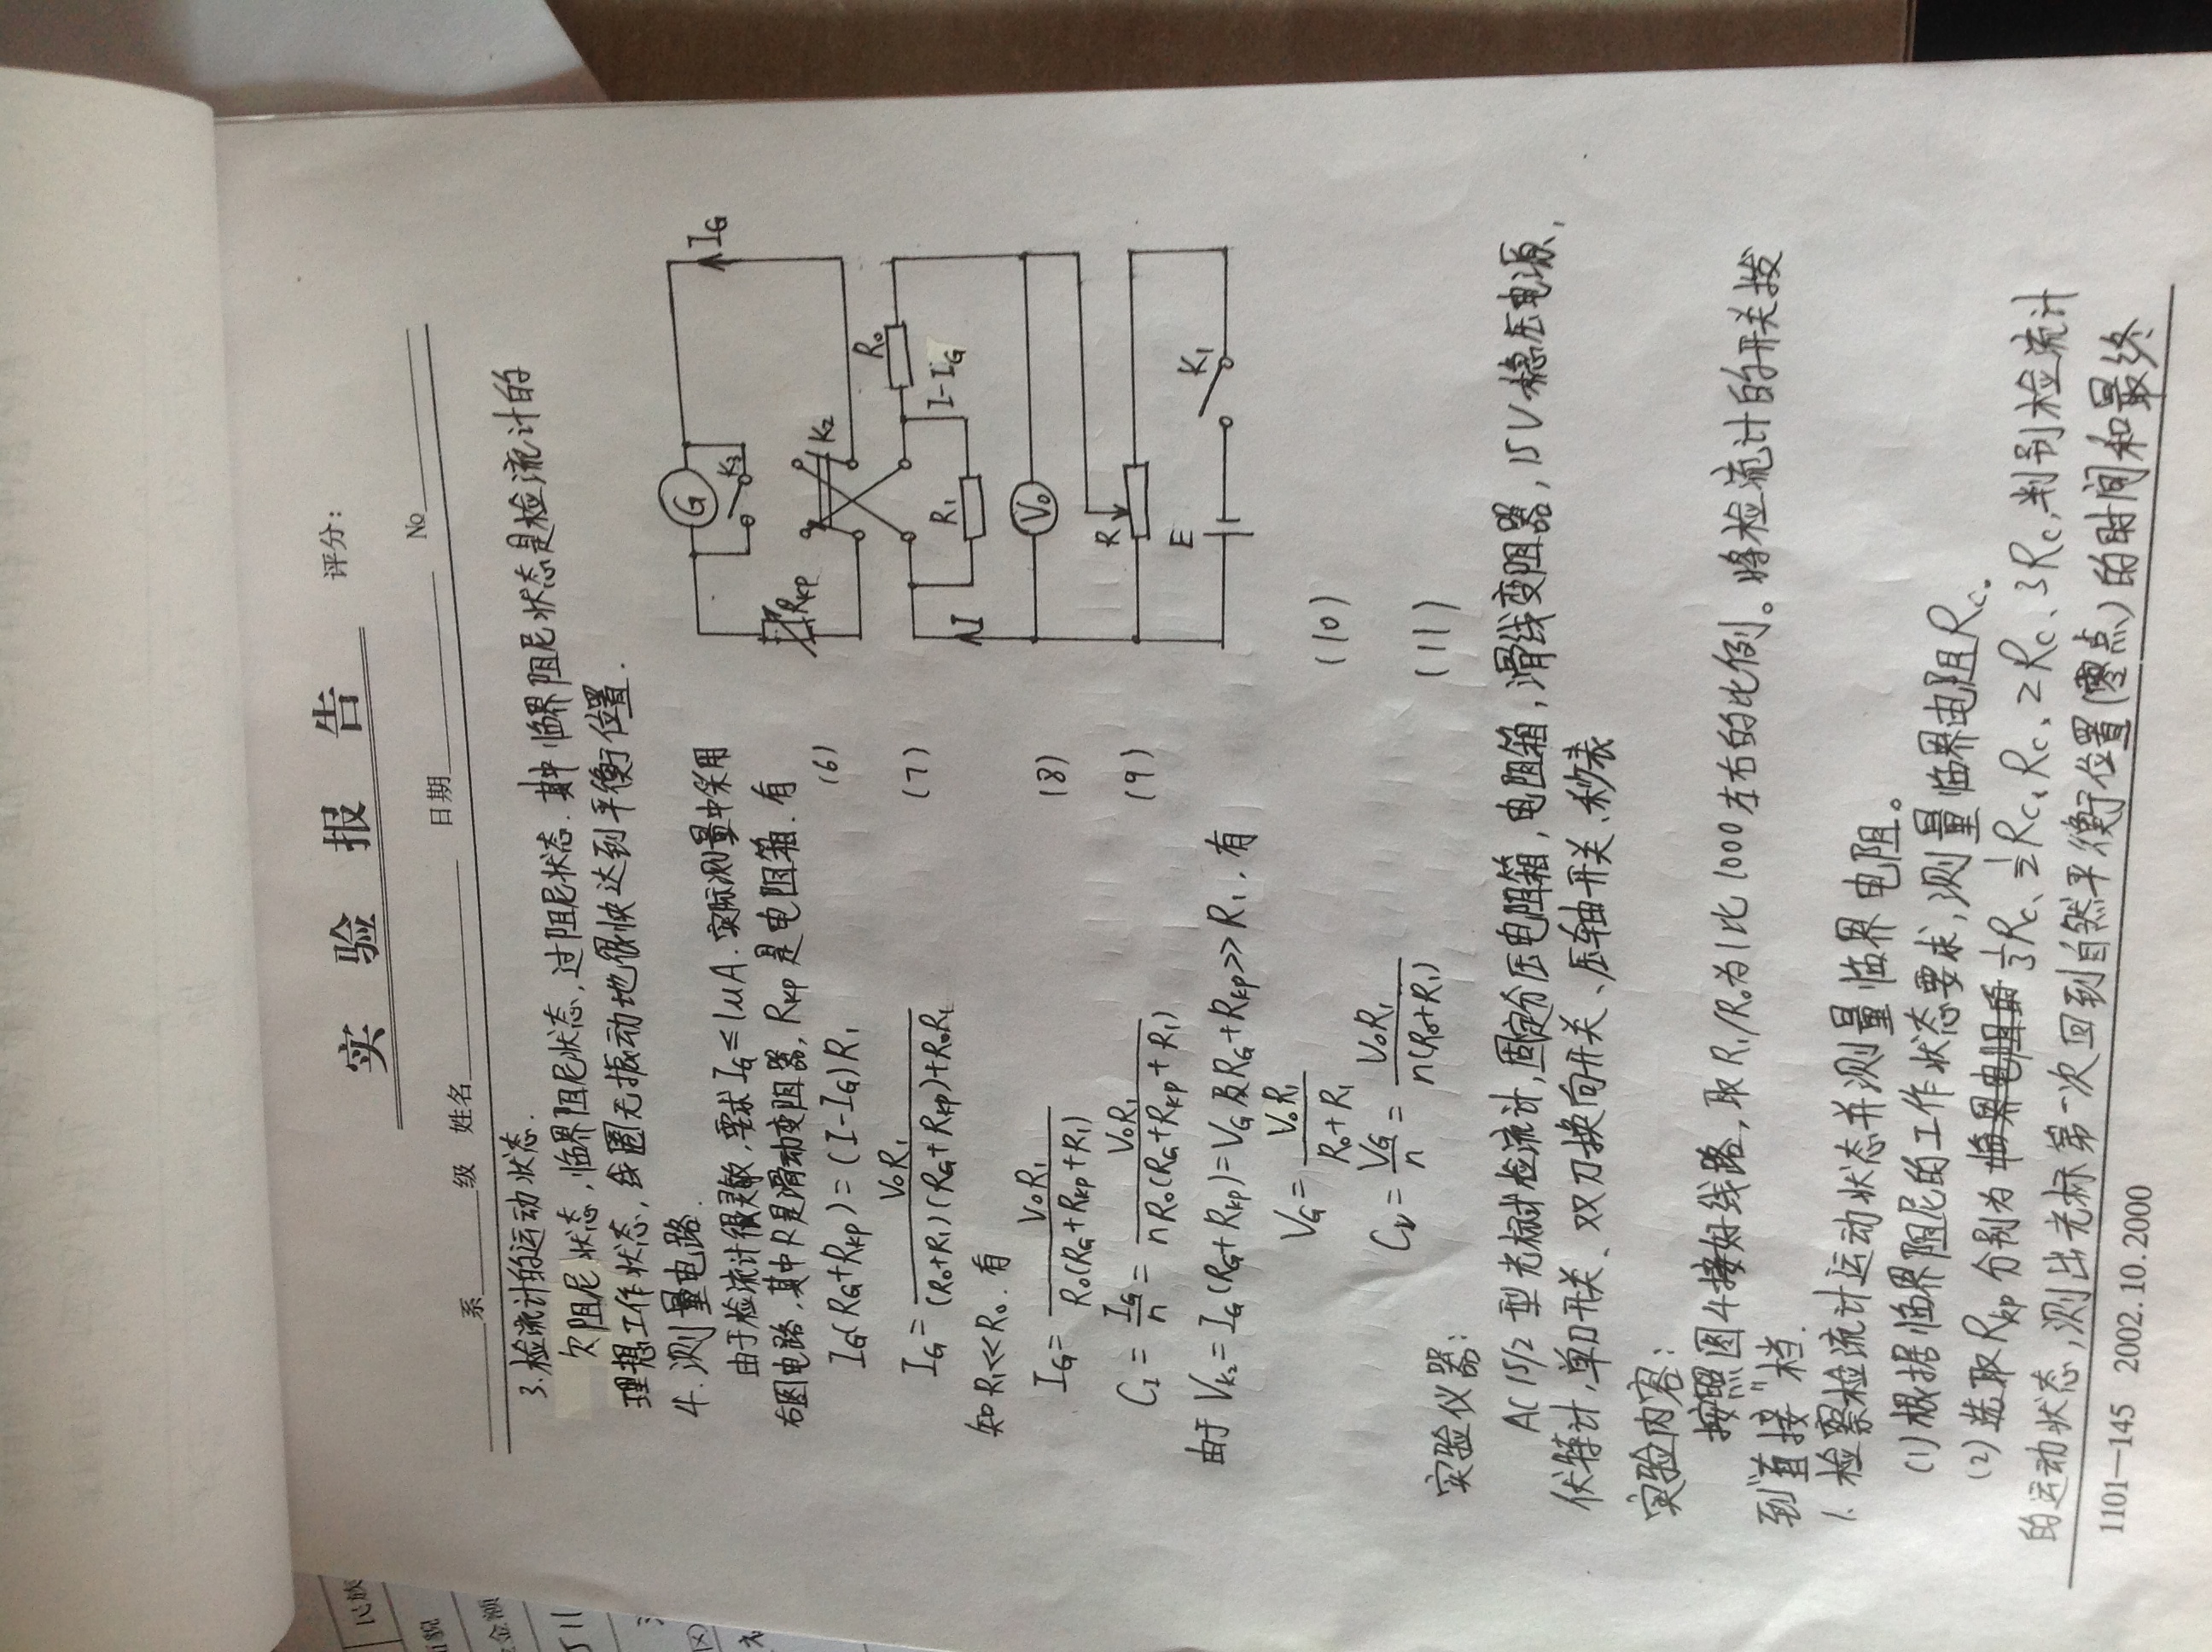 民族
金额
实验报告 评分：
系 级 姓名 日期 No
3.检流计的运动状态.
欠阻尼状态，临界阻尼状态，过阻尼状态.其中临界阻尼状态是检流计的
理想工作状态，线圈无振动地很快达到平衡位置.
4.测量电路.
由于检流计很灵敏，要求 I_G≤1μA.实际测量中采用
右图电路，其中R是滑动变阻器，R_KP是电阻箱.有
I_G(R_G+R_KP)=(I-I_G)R_1 (6)
I_G=V_0R_1/((R_0+R_1)(R_G+R_KP)+R_0R_1) (7)
知R_1≪R_0.有
I_G=V_0R_1/(R_0(R_G+R_KP+R_1)) (8)
C_I=I_G/n=V_0R_1/(nR_0(R_G+R_KP+R_1)) (9)
由于V_K2=I_G(R_G+R_KP)=V_G及R_G+R_KP≫R_1，有
V_G=V_0R_1/(R_0+R_1) (10)
C_V=V_G/n=V_0R_1/(n(R_0+R_1)) (11)
G
K_3
I_G
R_KP
K_2
R_0
R_1
I-I_G
I
V_0
R
E
K_1
实验仪器：
AC15/2型光标式检流计，固定分压电阻箱，电阻箱，滑线变阻器，15V稳压电源，
伏特计，单刀开关、双刀换向开关、压轴开关、秒表
实验内容：
按照图4接好线路，取R_1/R_0为1比1000左右的比例。将检流计的开关拨
到"直接"档.
1.检察检流计运动状态并测量临界电阻。
(1)根据临界阻尼的工作状态要求，测量临界电阻R_C。
(2)选取R_kp分别为临界电阻的1/3R_C、1/2R_C、R_C、2R_C、3R_C，判别检流计
的运动状态，测出光标第一次回到自然平衡位置(零点)的时间和最终
1101—145 2002.10.2000